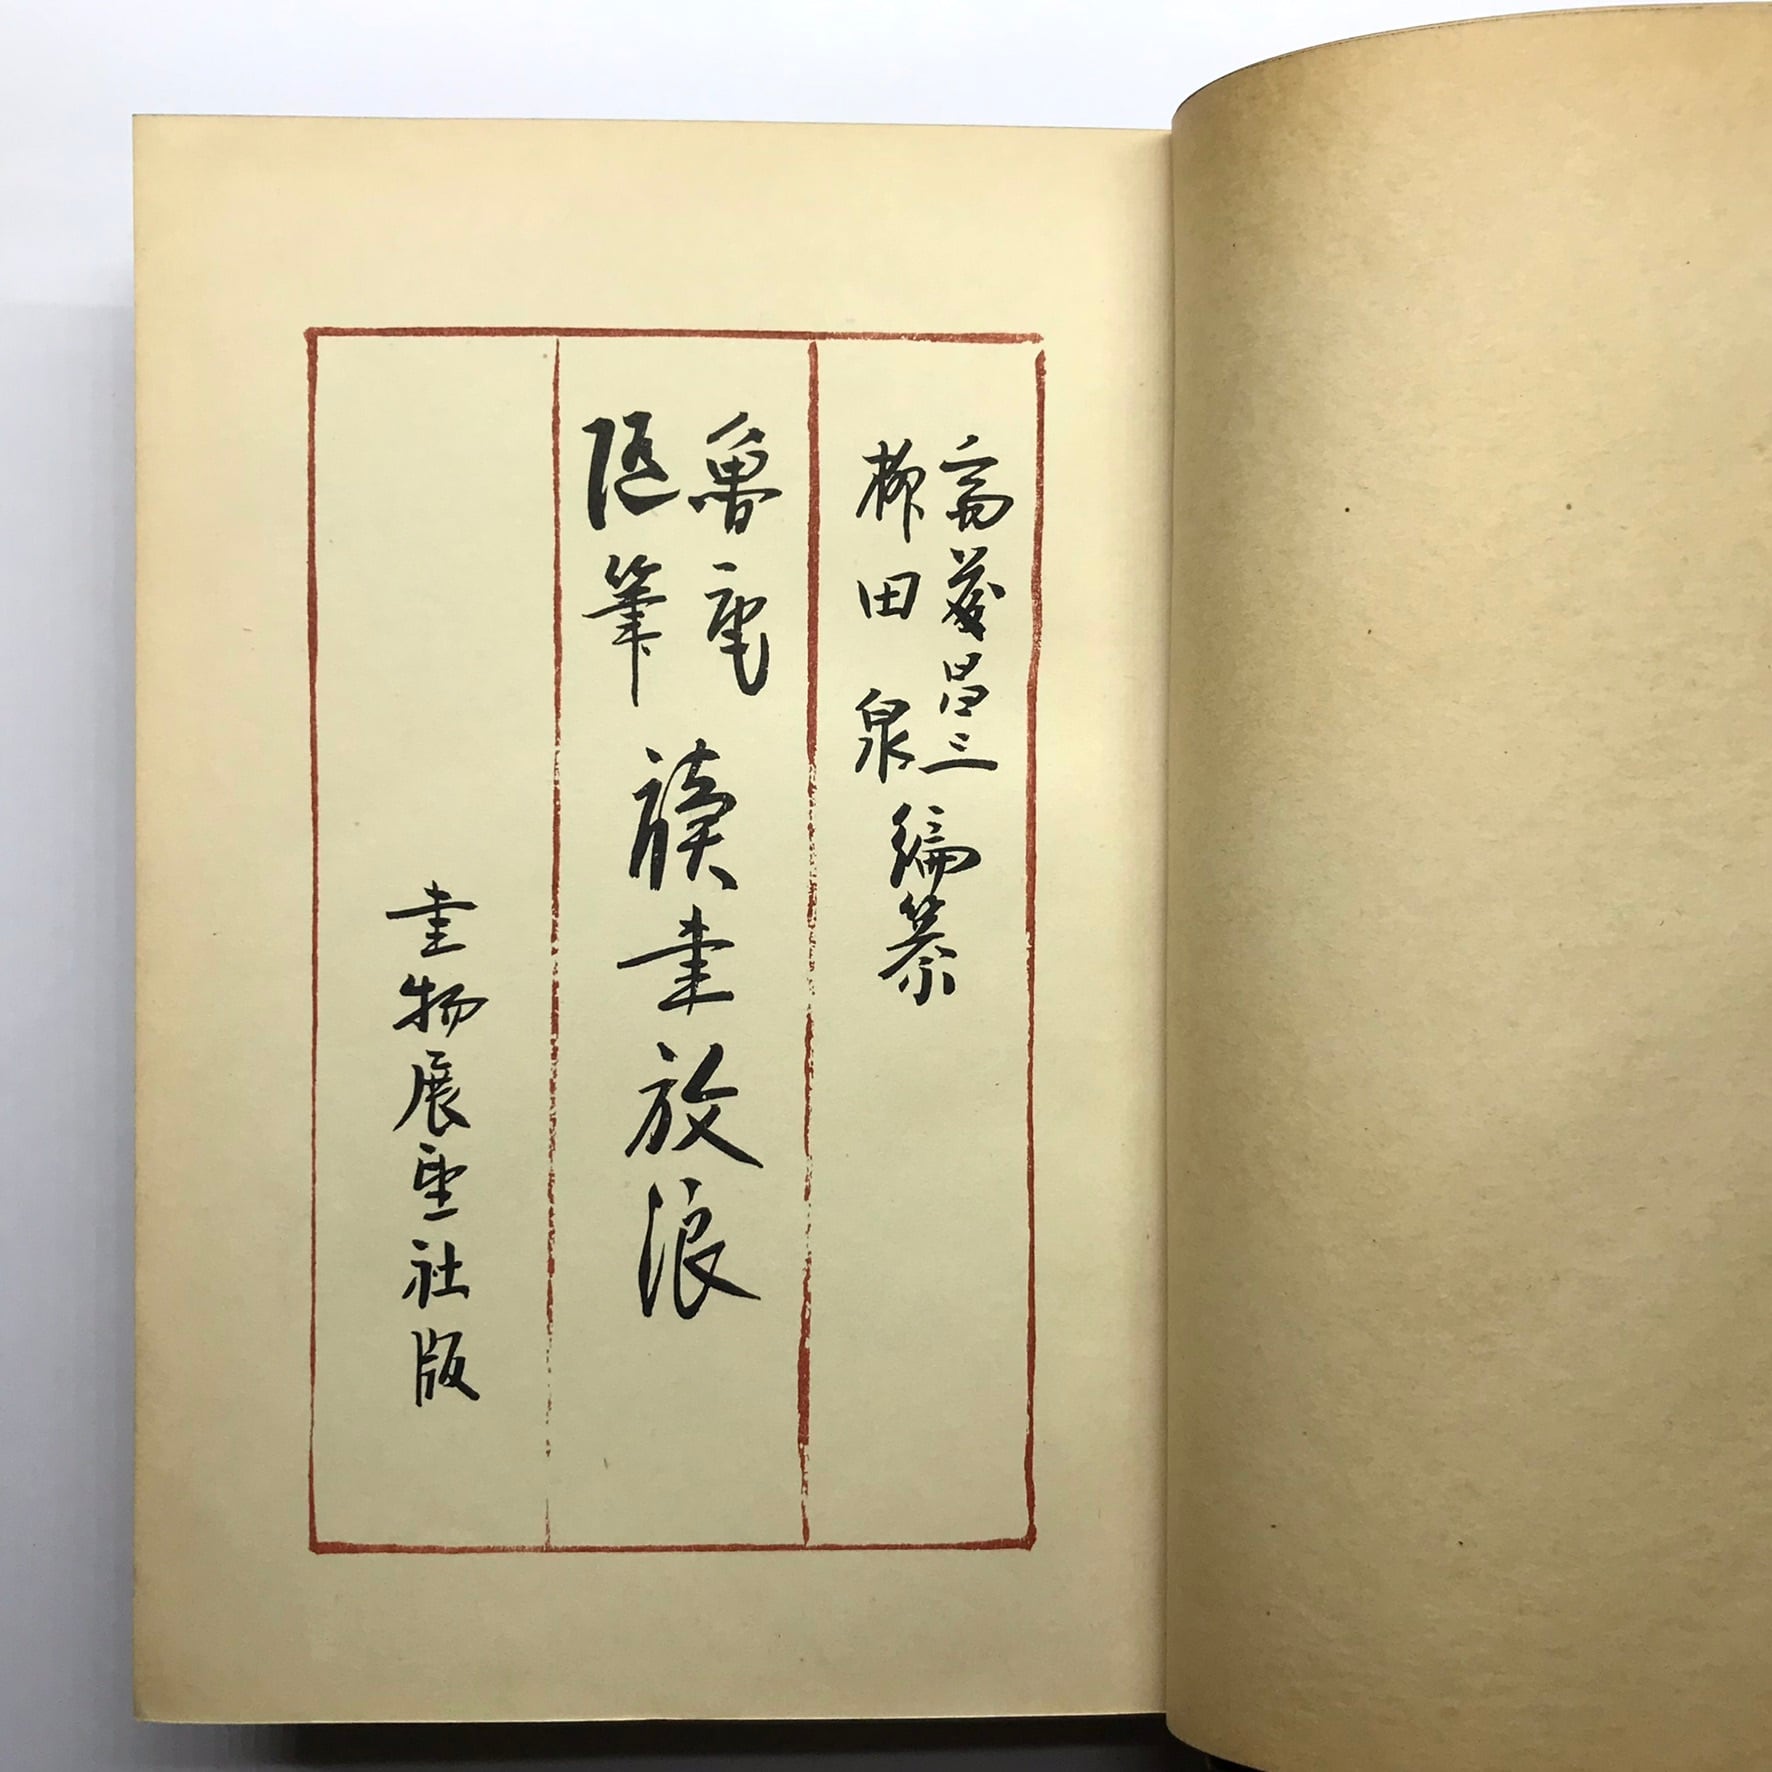 斎藤昌三
柳田泉
編纂
魯庵
随筆
読書放浪
書物展望社版